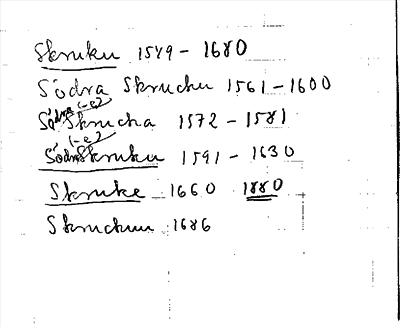 Skruku 1549 - 1680
Södra Skruchu 1561 - 1600
Södra (-e) Skrucha 1572 - 1581
(-e)
Södra Skruku 1591 - 1630
Skruke 1660 1880
Skruchuu 1686